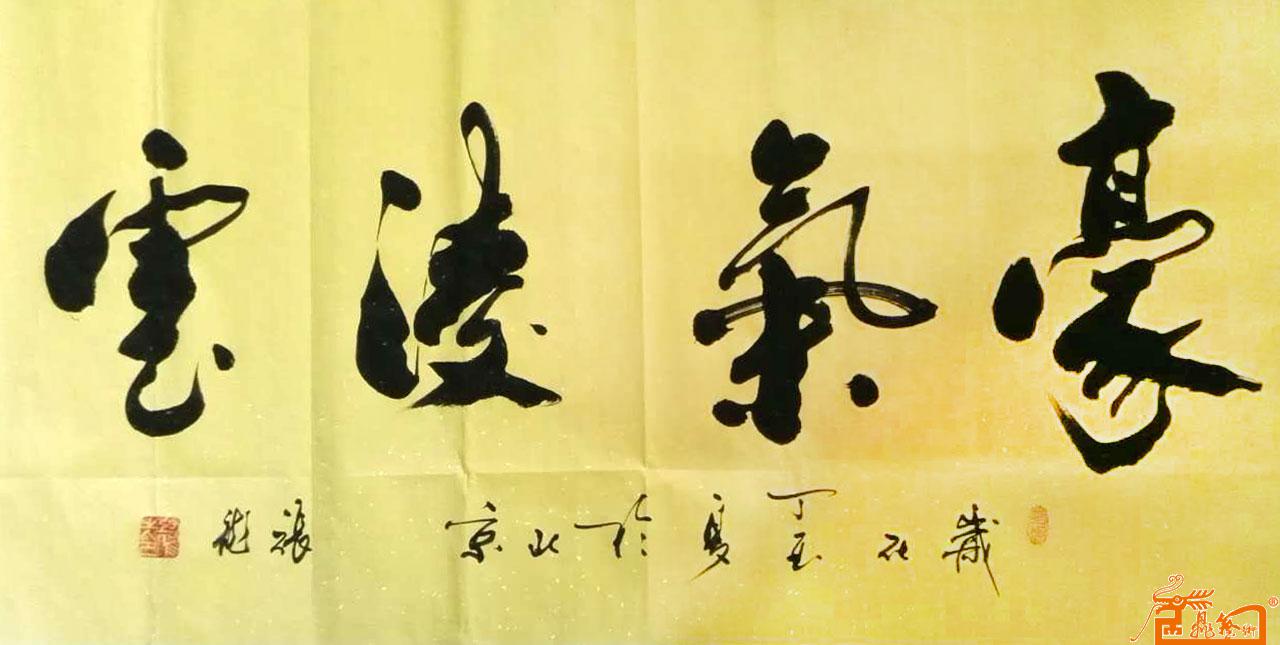 豪氣凌雲
歲在丁酉夏於北京 張